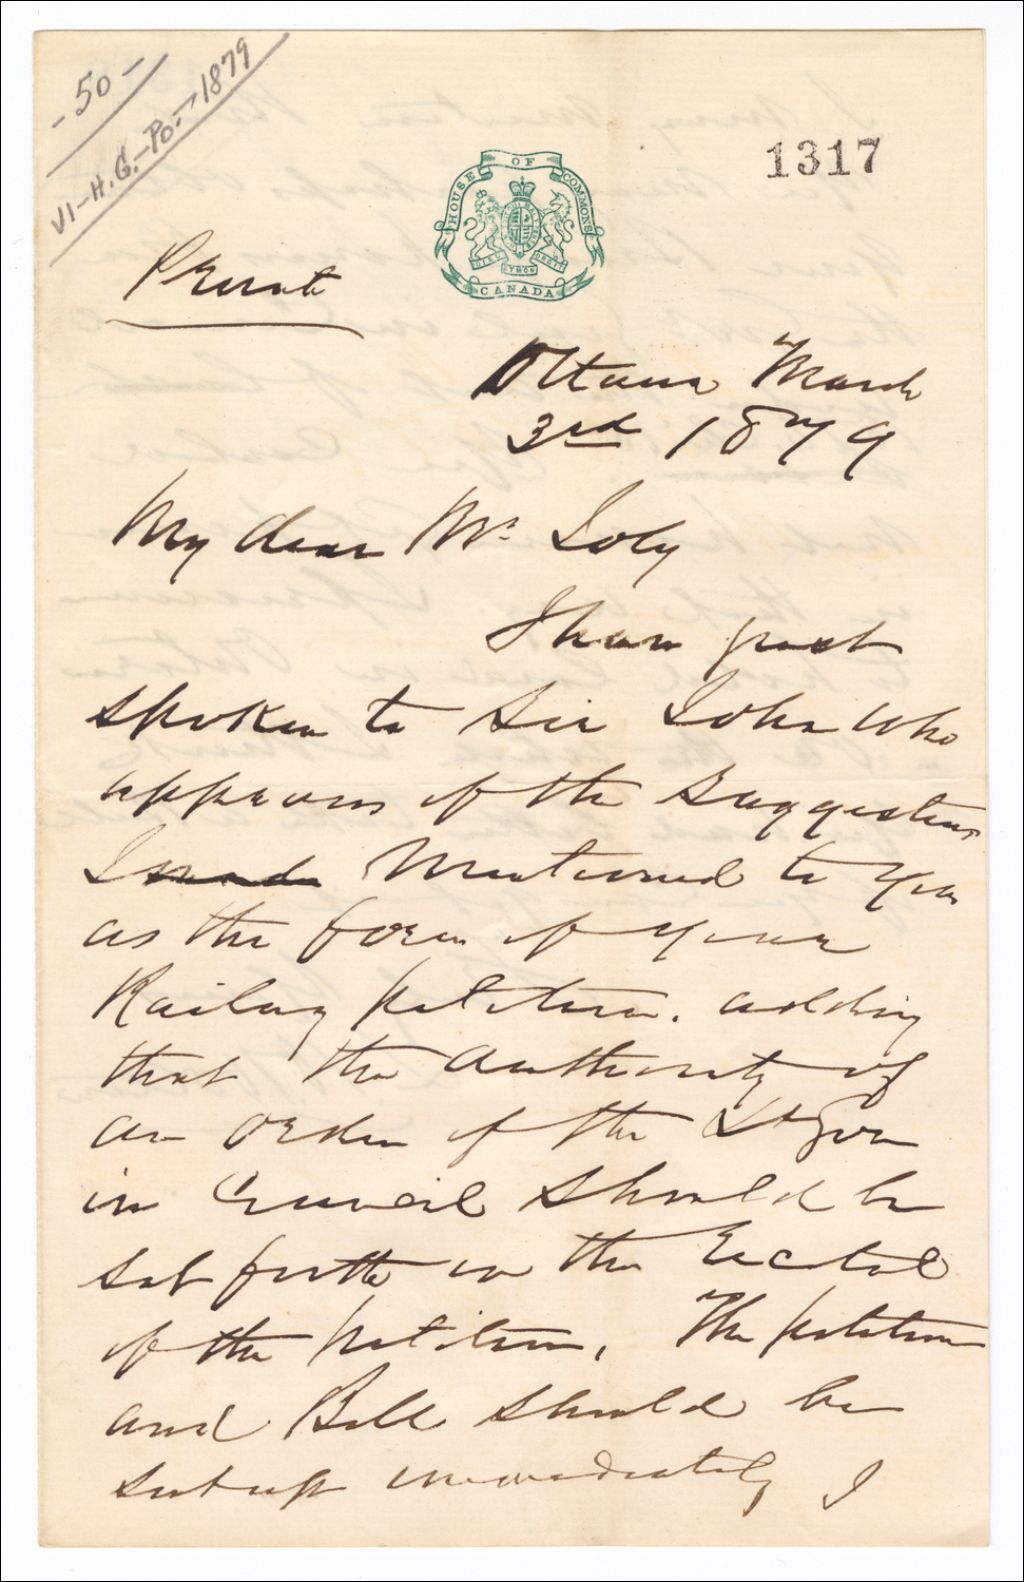 - 50 -
VI-H.G.-Po.-1879
1317
HOUSE OF COMMONS
DIEU ET MON DROIT
CANADA
Private
Ottawa March
3rd 1879
My dear Mr. Joly
I have just
spoken to Sir John who
approves of the suggestions
I made mentioned to you
as the form of your
Railway petition. adding
that the authority of
an order of the Lt Gov
in Council should be
set forth in the recital
of the petition. The petition
and Bill should be
sent up immediately I